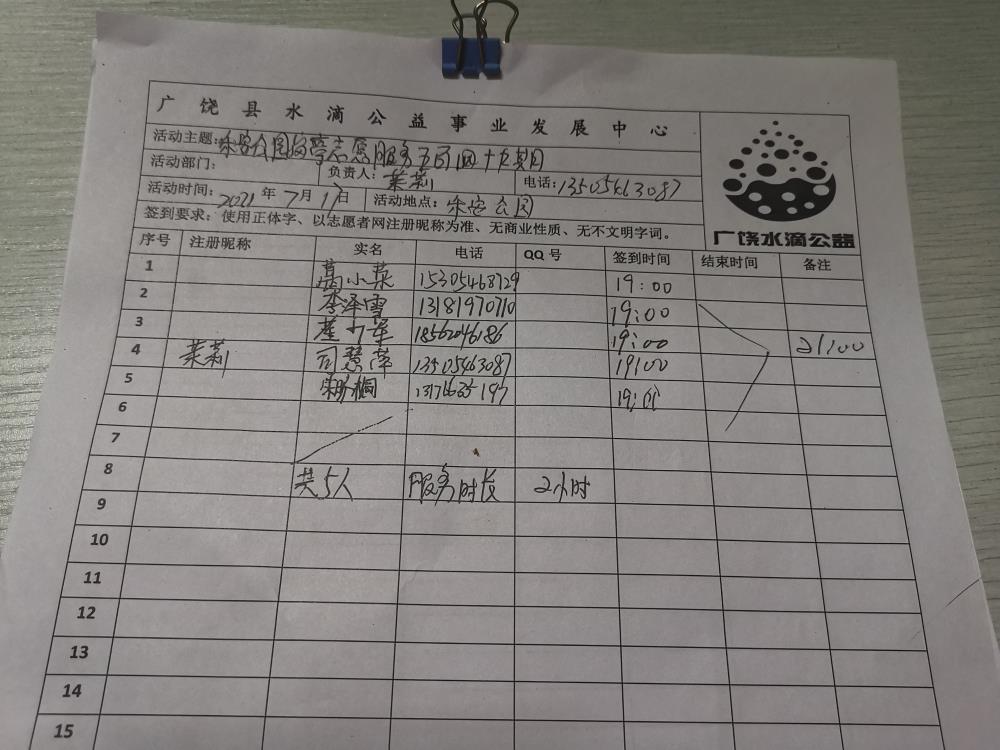 广饶县水滴公益事业发展中心
活动主题：乐安公园的警志愿服务五百四十九期
活动部门： 负责人：茉莉 电话：13505463087
活动时间：2021年7月17日 活动地点：乐安公园
签到要求：使用正体字、以志愿者网注册昵称为准、无商业性质、无不文明字词。
广饶水滴公益
序号 注册昵称 实名 电话 QQ号 签到时间 结束时间 备注
1 小菜 15305468729 19:00
2 李泽雪 13181970710 19:00
3 18562046186 19:00 21:00
4 茉莉 司慧萍 13505463087 19:00
5 19:00
6
7
8 共5人 服务时长 2小时
9
10
11
12
13
14
15